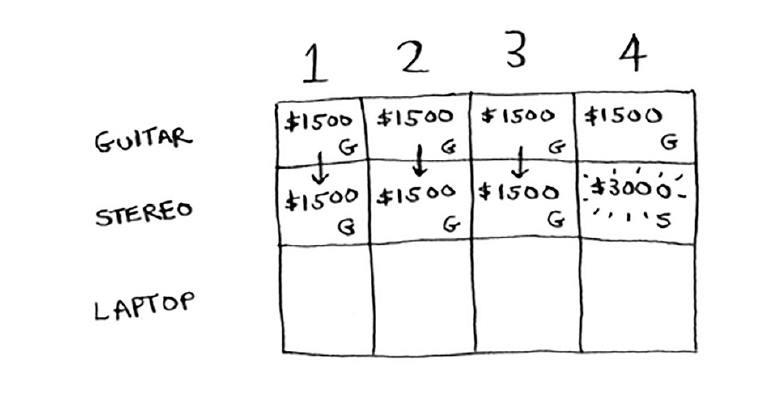 1 2 3 4
GUITAR $1500 G $1500 G $1500 G $1500 G
STEREO $1500 G $1500 G $1500 G $3000 S
LAPTOP